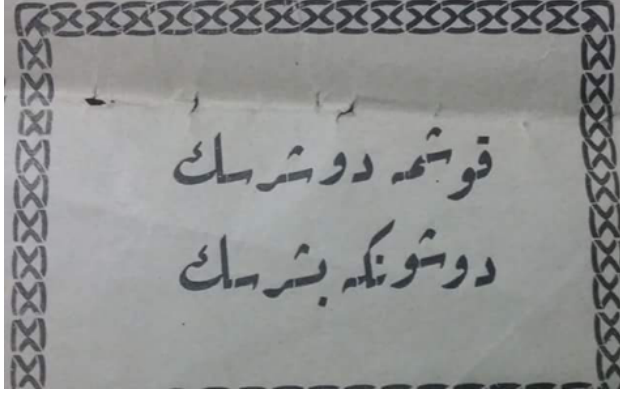 قوشمه دوشرسك
دوشونكه بشرسك